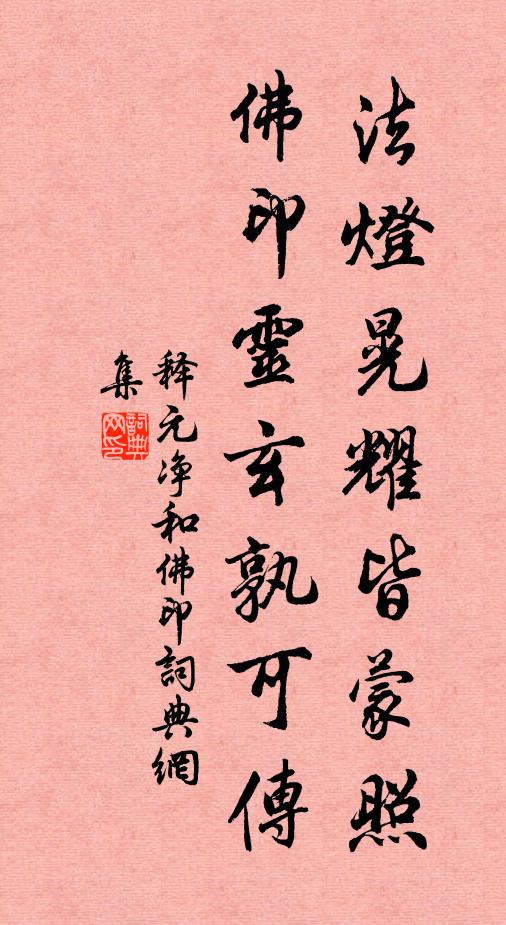 法燈晃耀皆蒙照
佛印靈玄孰可傳
释元净和佛印詞典網
集
詞典
网印